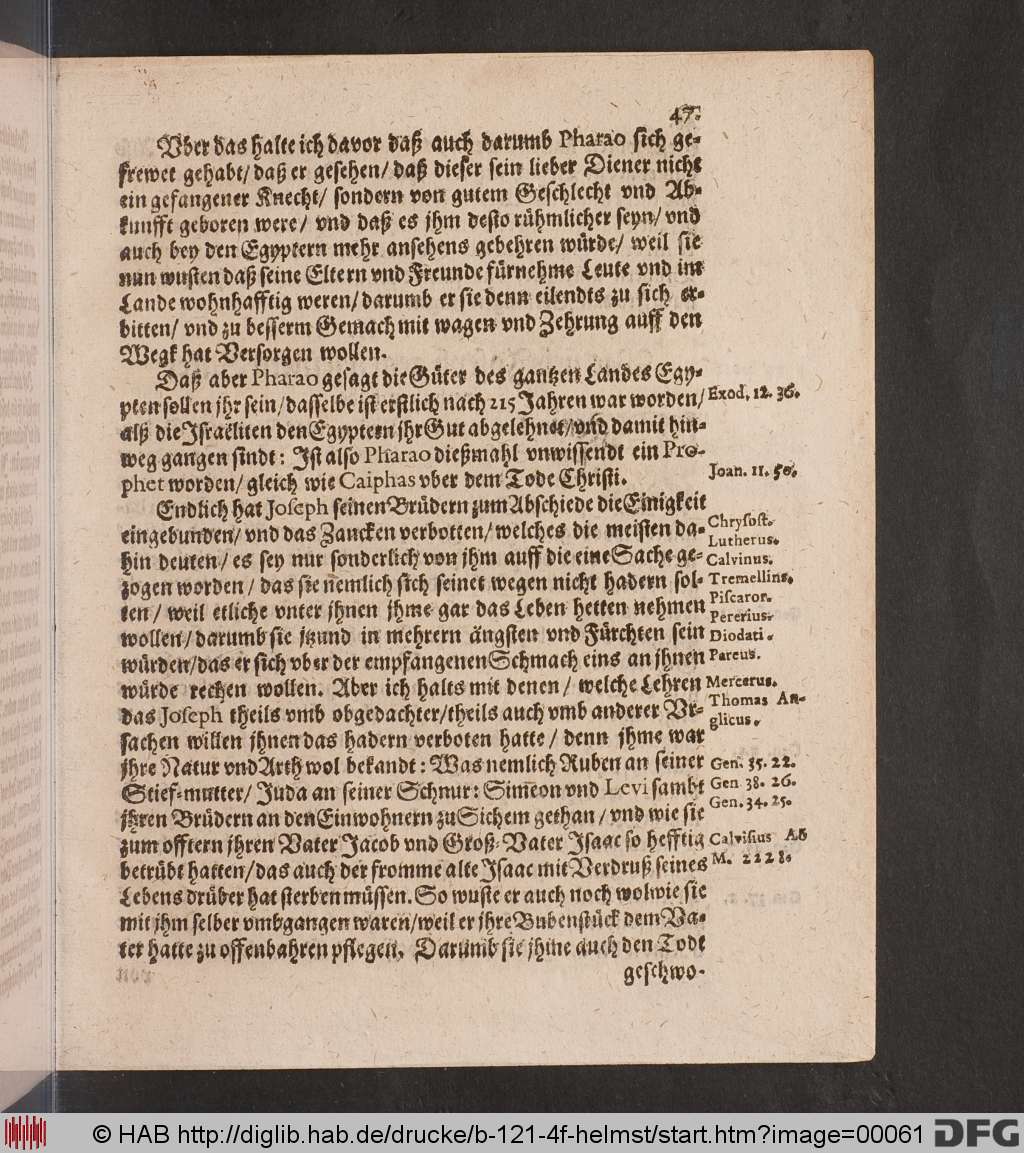 47.
Vber das halte ich davor daß auch darumb Pharao sich ge-
frewet gehabt/ daß er gesehen/ daß dieser sein lieber Diener nicht
ein gefangener Knecht/ sondern von gutem Geschlecht vnd Ab-
kunfft geboren were/ vnd daß es jhm desto rühmlicher seyn/ vnd
auch bey den Egyptern mehr ansehens gebehren würde/ weil sie
nun wusten daß seine Eltern vnd Freunde fürnehme Leute vnd im
Lande wohnhafftig weren/ darumb er sie denn eilendts zu sich er-
bitten/ vnd zu besserm Gemach mit wagen vnd Zehrung auff den
Wegk hat Versorgen wollen.
Daß aber Pharao gesagt die Güter des gantzen Landes Egy-
pten sollen jhr sein/ dasselbe ist erstlich nach 215 Jahren war worden/
Exod. 12. 36.
alß die Israëliten den Egyptern jhr Gut abgelehnet/ vnd damit hin-
weg gangen sindt: Ist also Pharao dießmahl vnwissendt ein Pro-
phet worden/ gleich wie Caiphas vber dem Tode Christi.
Joan. 11. 50.
Endlich hat Joseph seinen Brüdern zum Abschiede die Einigkeit
eingebunden/ vnd das Zancken verbotten/ welches die meisten da-
Chrysost.
Lutherus.
hin deuten/ es sey nur sonderlich von jhm auff die eine Sache ge-
Calvinus.
zogen worden/ das sie nemlich sich seinet wegen nicht hadern sol-
Tremellius.
Piscator.
ten/ weil etliche vnter jhnen jhme gar das Leben hetten nehmen
Pererius.
wollen/ darumb sie jtzund in mehrern ängsten vnd Fürchten sein
Diodati.
würden/ das er sich vber der empfangenen Schmach eins an jhnen
Pareus.
würde rechen wollen. Aber ich halts mit denen/ welche Lehren
Mercerus.
das Joseph theils vmb obgedachter/ theils auch vmb anderer Vr-
Thomas An-
glicus.
sachen willen jhnen das hadern verboten hatte/ denn jhme war
jhre Natur vnd Arth wol bekandt: Was nemlich Ruben an seiner
Gen. 35. 22.
Stief-mutter/ Juda an seiner Schnur: Simeon vnd Levi sambt
Gen 38. 26.
Gen. 34. 25.
jhren Brüdern an den Einwohnern zu Sichem gethan/ vnd wie sie
zum offtern jhren Vater Jacob vnd Groß-Vater Isaac so hefftig
Calvisius Ab
betrübt hatten/ das auch der fromme alte Isaac mit Verdruß seines
M. 2228.
Lebens drüber hat sterben müssen. So wuste er auch noch wol wie sie
mit jhm selber vmbgangen waren/ weil er jhre Bubenstück dem Va-
ter hatte zu offenbahren pflegen. Darumb sie jhme auch den Todt
geschwo-
© HAB http://diglib.hab.de/drucke/b-121-4f-helmst/start.htm?image=00061
DFG